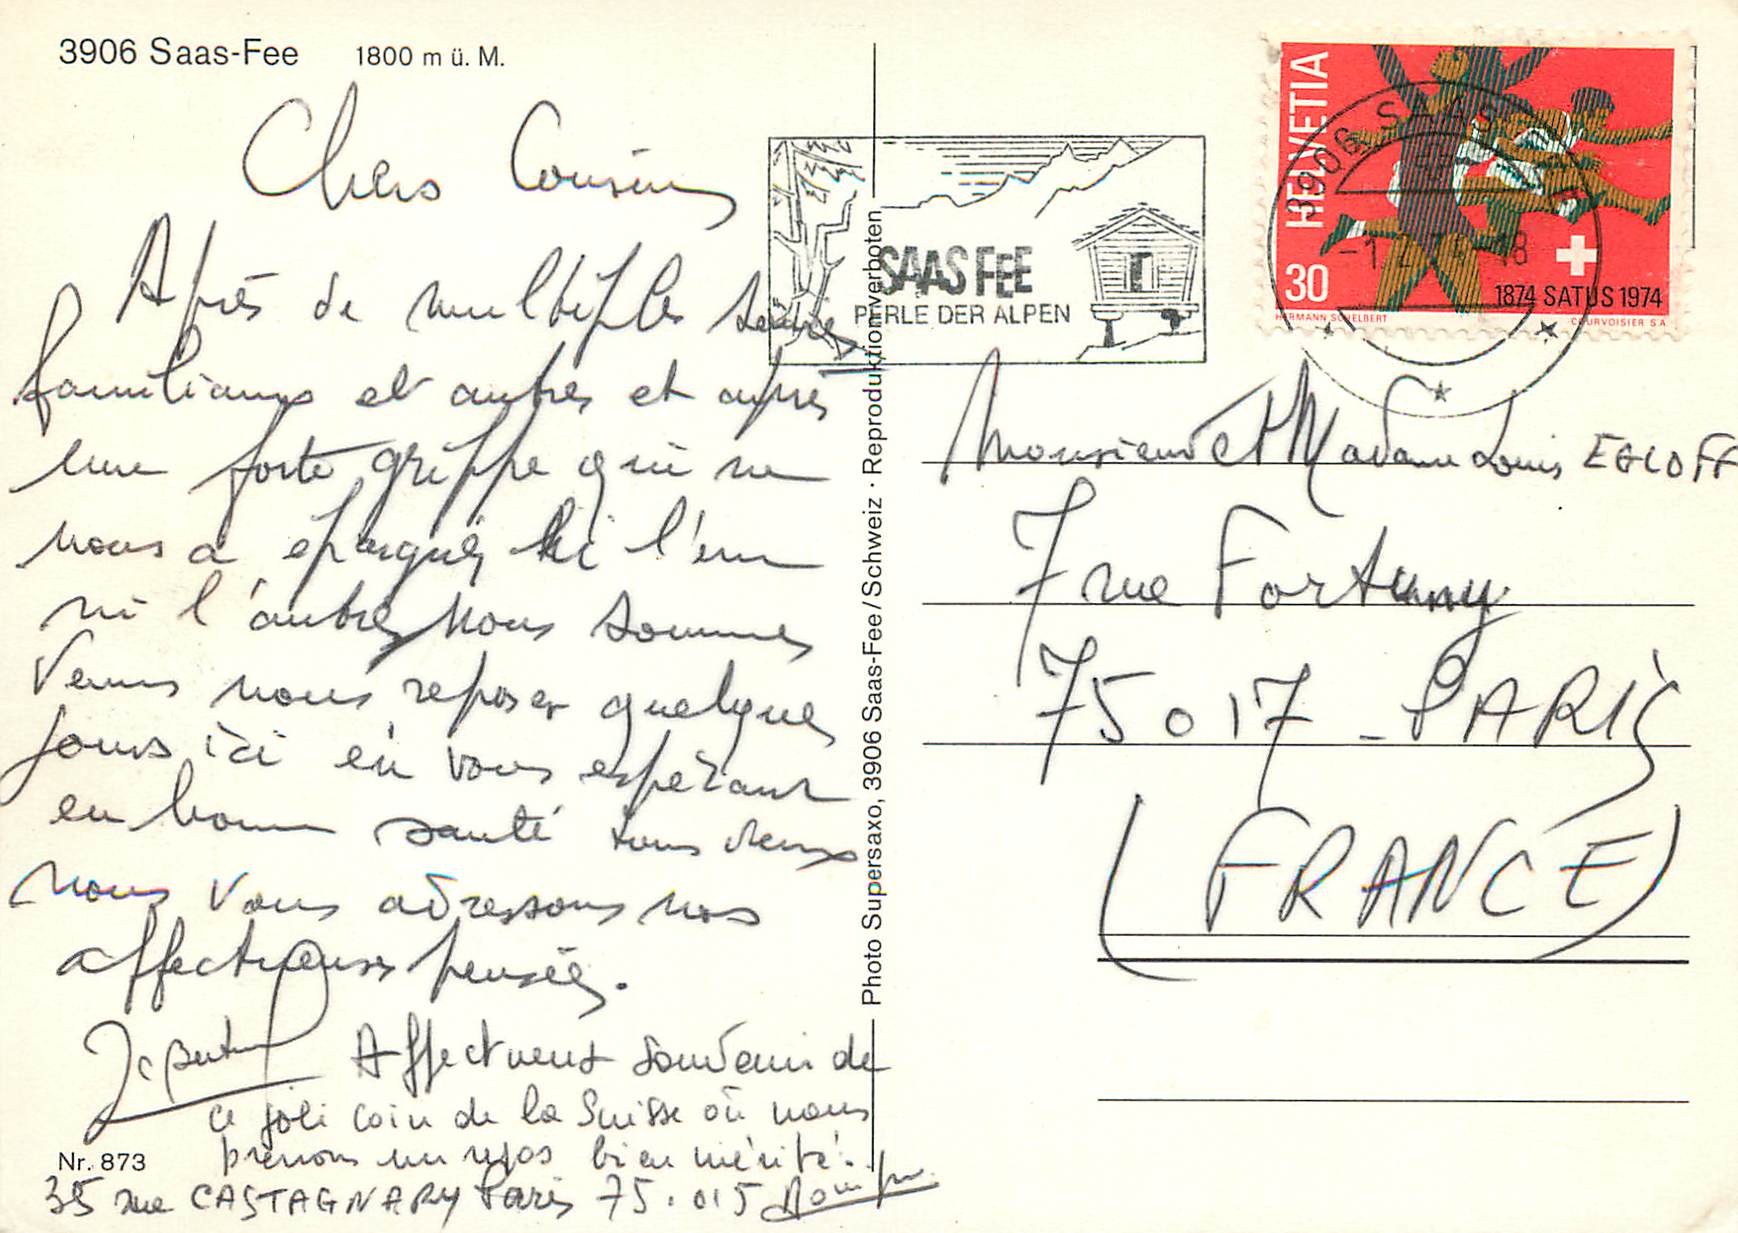 3906 Saas-Fee 1800 m ü. M.
Chers Cousins
Après de multiples
familiaux et autres et après
une forte grippe qui ne
nous a épargnés ni l'un
ni l'autre, nous sommes
venus nous reposer quelques
jours ici en vous espérant
en bonne santé tous deux
nous vous adressons nos
affectueuses pensées.
Affectueux souvenir de
ce joli coin de la Suisse où nous
prenons un repos bien mérité.
Nr. 873
35 rue CASTAGNARY Paris 75.015
Photo Supersaxo, 3906 Saas-Fee/Schweiz · Reproduktion verboten
SAAS FEE
PERLE DER ALPEN
HELVETIA
30
1874 SATUS 1974
HERMANN SCHELBERT
COURVOISIER S A
3906 SAAS
Monsieur et Madame Louis EGLOFF
7 rue Fortuny
75017 - PARIS
(FRANCE)